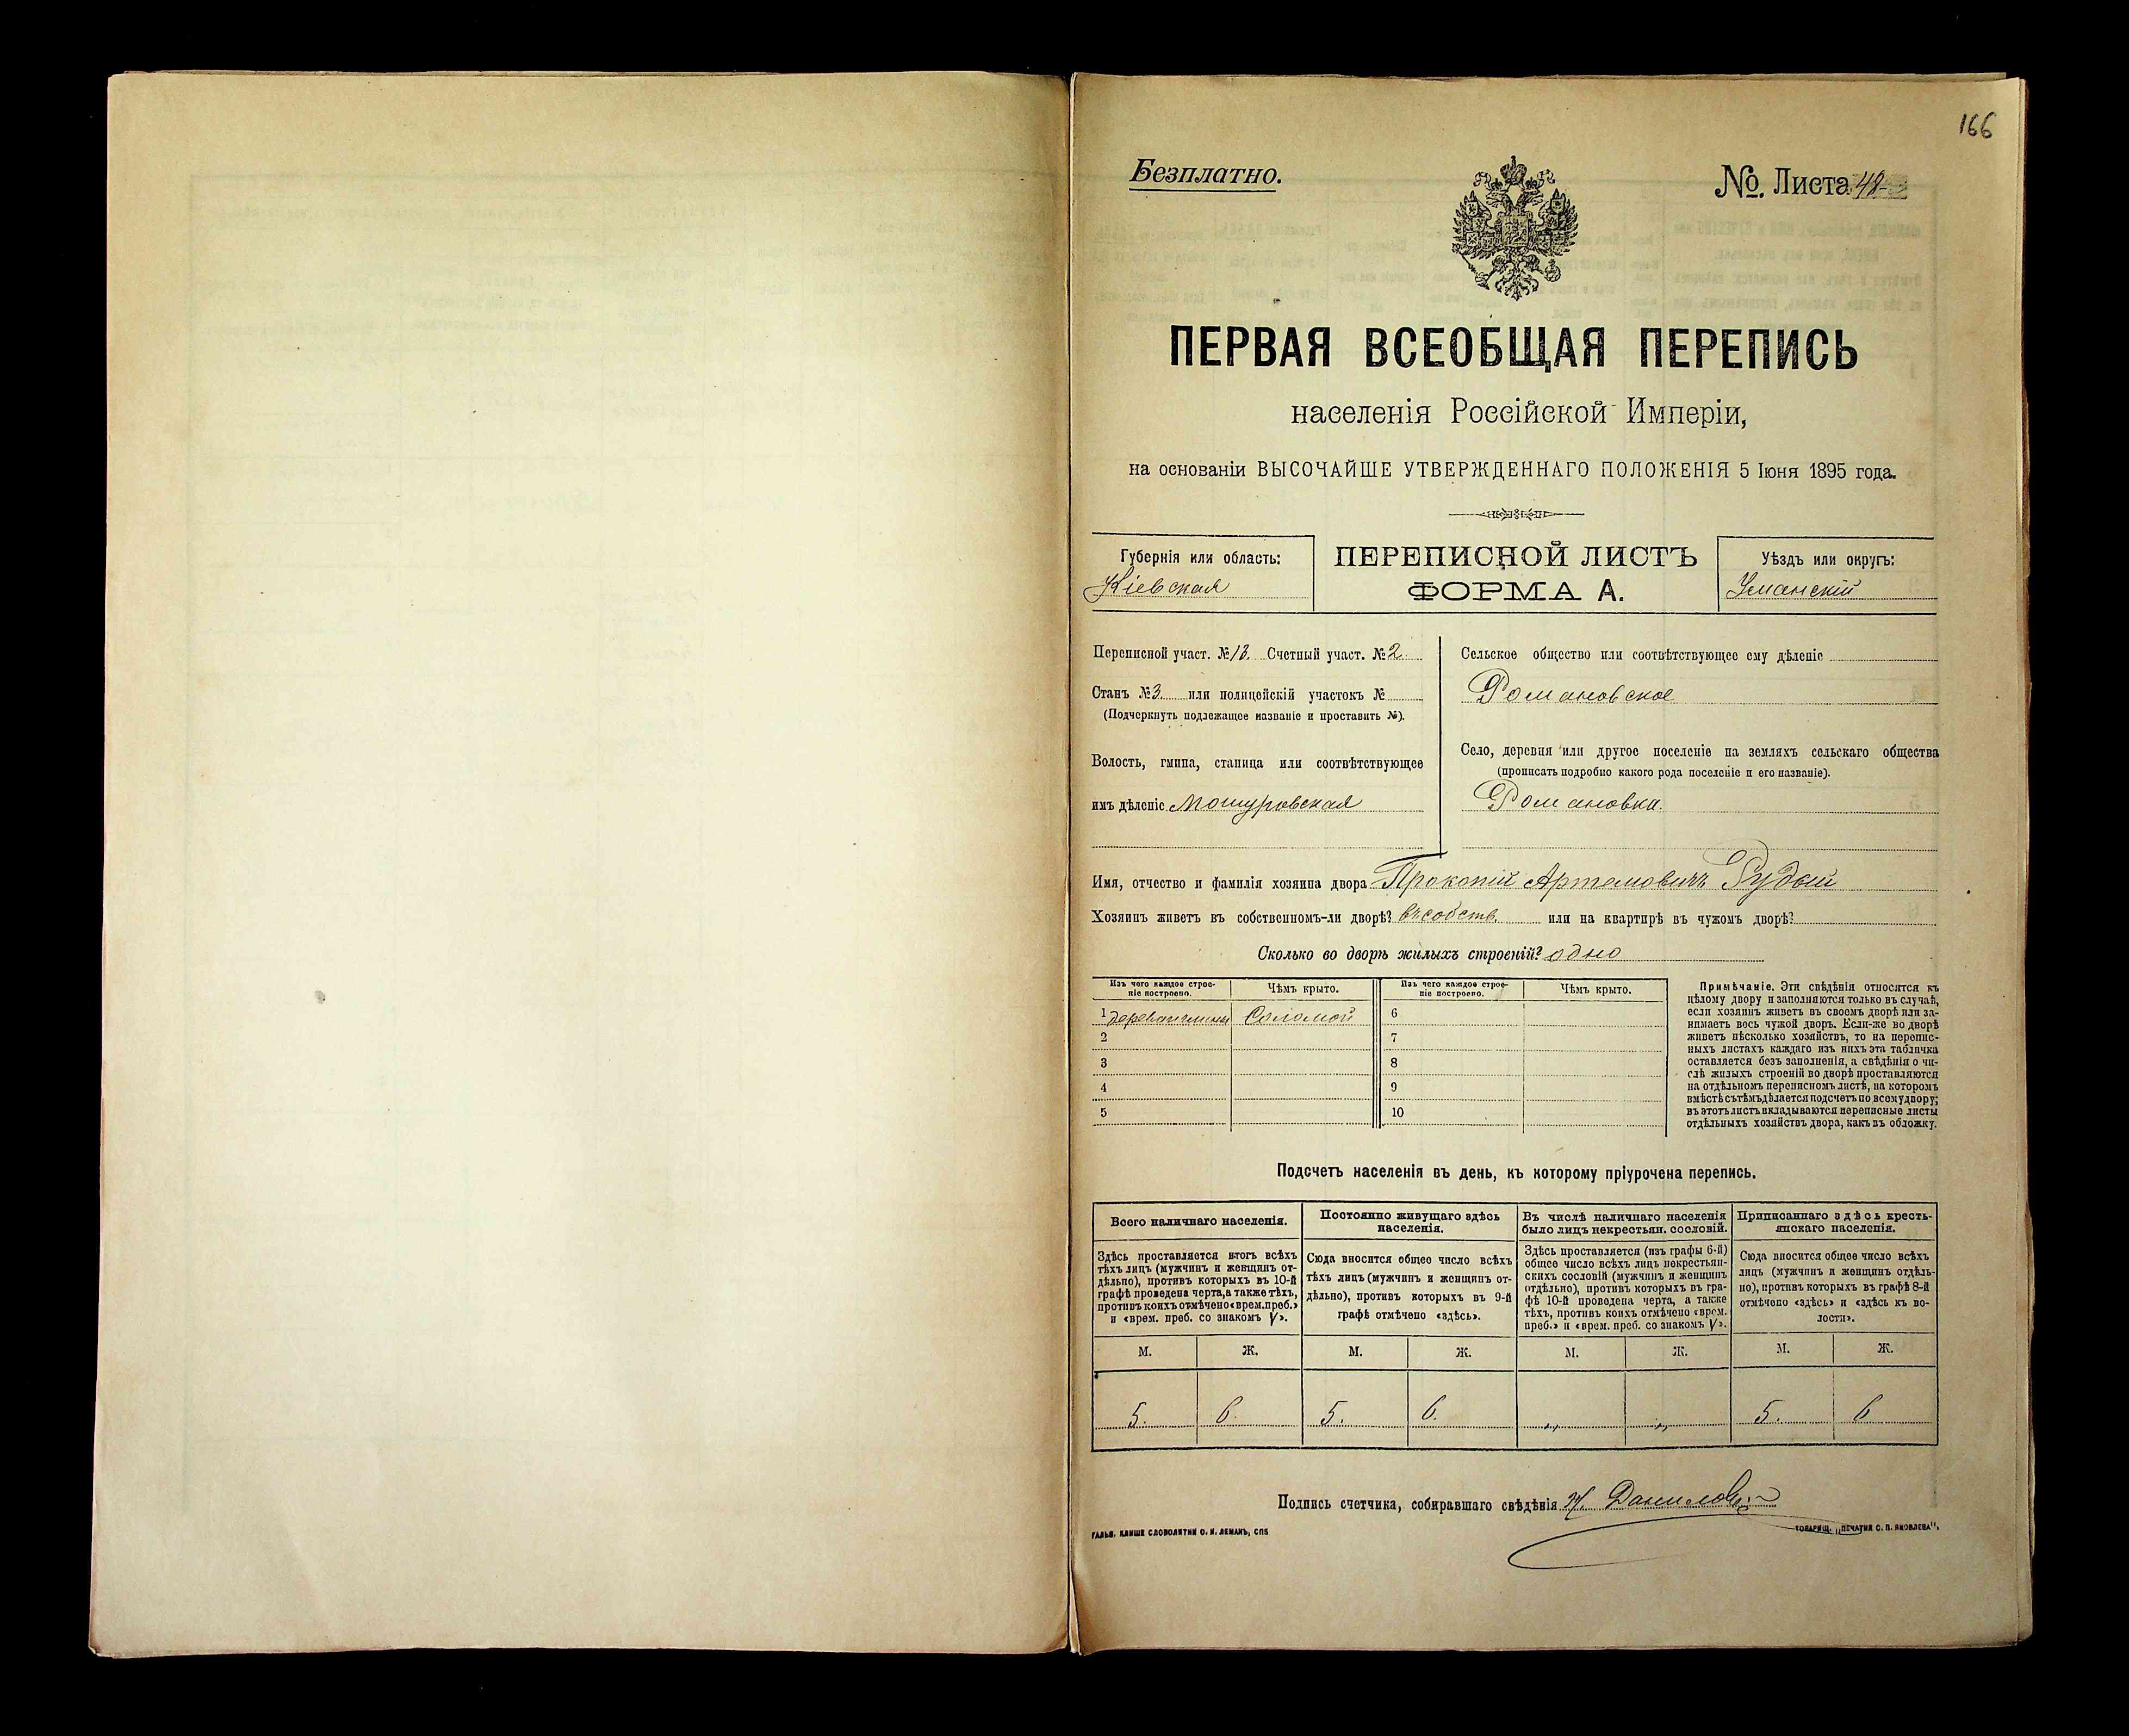 166
Безплатно.
№ Листа 48
ПЕРВАЯ ВСЕОБЩАЯ ПЕРЕПИСЬ
населенія Россійской Имперіи,
на основаніи ВЫСОЧАЙШЕ УТВЕРЖДЕННАГО ПОЛОЖЕНІЯ 5 Іюня 1895 года.
Губернія или область:
Кіевская
ПЕРЕПИСНОЙ ЛИСТЪ
ФОРМА А.
Уѣздъ или округъ:
Уманскій
Переписной участ. № 13. Счетный участ. № 2.
Станъ № 3. или полицейскій участокъ №
(Подчеркнуть подлежащее названіе и проставить №).
Волость, гмина, станица или соотвѣтствующее
имъ дѣленіе Мошуровская
Сельское общество или соотвѣтствующее ему дѣленіе
Романовское
Село, деревня или другое поселеніе на земляхъ сельскаго общества
(прописать подробно какого рода поселеніе и его названіе).
Романовка.
Имя, отчество и фамилія хозяина двора Прокопій Артемовичъ Рудый
Хозяинъ живетъ въ собственномъ-ли дворѣ? въ собств. или на квартирѣ въ чужомъ дворѣ?
Сколько во дворѣ жилыхъ строеній? одно
Изъ чего каждое строе-
ніе построено.
Чѣмъ крыто.
Изъ чего каждое строе-
ніе построено.
Чѣмъ крыто.
1 Соломой 6
2 7
3 8
4 9
5 10
Примѣчаніе. Эти свѣдѣнія относятся къ
цѣлому двору и заполняются только въ случаѣ,
если хозяинъ живетъ въ своемъ дворѣ или за-
нимаетъ весь чужой дворъ. Если-же во дворѣ
живетъ нѣсколько хозяйствъ, то на перепис-
ныхъ листахъ каждаго изъ нихъ эта табличка
оставляется безъ заполненія, а свѣдѣнія о чи-
слѣ жилыхъ строеній во дворѣ проставляются
на отдѣльномъ переписномъ листѣ, на которомъ
вмѣстѣ съ тѣмъ дѣлается подсчетъ по всему двору;
въ этотъ листъ вкладываются переписные листы
отдѣльныхъ хозяйствъ двора, какъ въ обложку.
Подсчетъ населенія въ день, къ которому пріурочена перепись.
Всего наличнаго населенія.
Здѣсь проставляется итогъ всѣхъ
тѣхъ лицъ (мужчинъ и женщинъ от-
дѣльно), противъ которыхъ въ 10-й
графѣ проведена черта, а также тѣхъ,
противъ коихъ отмѣчено «врем. преб.»
и «врем. преб. со знакомъ V».
Постоянно живущаго здѣсь
населенія.
Сюда вносится общее число всѣхъ
тѣхъ лицъ (мужчинъ и женщинъ от-
дѣльно), противъ которыхъ въ 9-й
графѣ отмѣчено «здѣсь».
Въ числѣ наличнаго населенія
было лицъ некрестьян. сословій.
Здѣсь проставляется (изъ графы 6-й)
общее число всѣхъ лицъ некрестьян-
скихъ сословій (мужчинъ и женщинъ
отдѣльно), противъ которыхъ въ гра-
фѣ 10-й проведена черта, а также
тѣхъ, противъ коихъ отмѣчено «врем.
преб.» и «врем. преб. со знакомъ V».
Приписаннаго здѣсь кресть-
янскаго населенія.
Сюда вносится общее число всѣхъ
лицъ (мужчинъ и женщинъ отдѣль-
но), противъ которыхъ въ графѣ 8-й
отмѣчено «здѣсь» и «здѣсь къ во-
лости».
М. Ж. М. Ж. М. Ж. М. Ж.
5. 6. 5. 6. 5. 6
Подпись счетчика, собиравшаго свѣдѣнія
ГАЛЬВ. КЛИШЕ СЛОВОЛИТНИ О. И. ЛЕМАНЪ, СПБ
ТОВАРИЩ. „ПЕЧАТНЯ С. П. ЯКОВЛЕВА“,